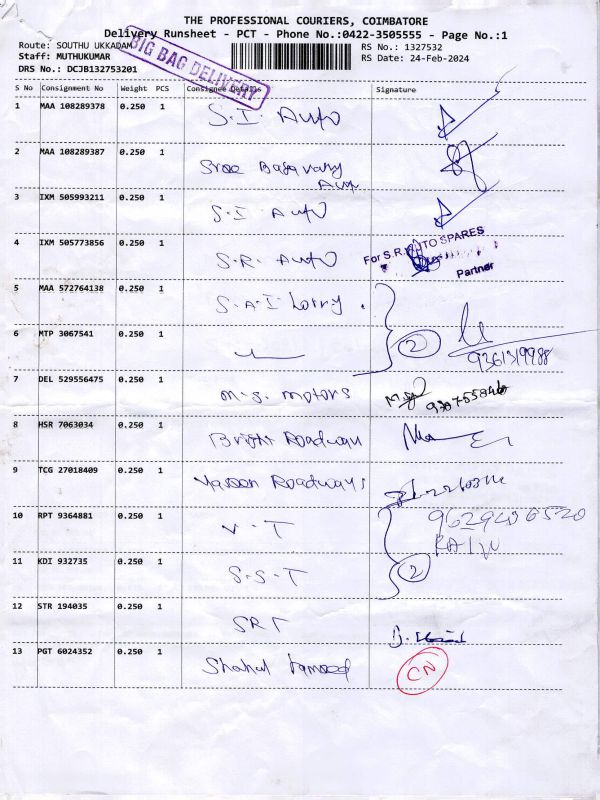 THE PROFESSIONAL COURIERS, COIMBATORE
Delivery Runsheet - PCT - Phone No.:0422-3505555 - Page No.:1
Route: SOUTHU UKKADAM
RS No.: 1327532
Staff: MUTHUKUMAR
RS Date: 24-Feb-2024
DRS No.: DCJB132753201
BIG BAG DELIVERY
S No Consignment No Weight PCS Consignee Details Signature
1 MAA 108289378 0.250 1 S.I. Auto
2 MAA 108289387 0.250 1 Sree
Auto
3 IXM 505993211 0.250 1 S.I Auto
4 IXM 505773856 0.250 1 S.R. Auto
For S.R. AUTO SPARES
Partner
5 MAA 572764138 0.250 1 S.A.I Lorry
6 MTP 3067541 0.250 1 2
9361319988
7 DEL 529556475 0.250 1 M.S. Motors
8 HSR 7063034 0.250 1 Bright Roadway
9 TCG 27018409 0.250 1 Roadways
10 RPT 9364881 0.250 1 V.T
11 KDI 932735 0.250 1 S.S.T 2
12 STR 194035 0.250 1 SRT
13 PGT 6024352 0.250 1 Shahul CN